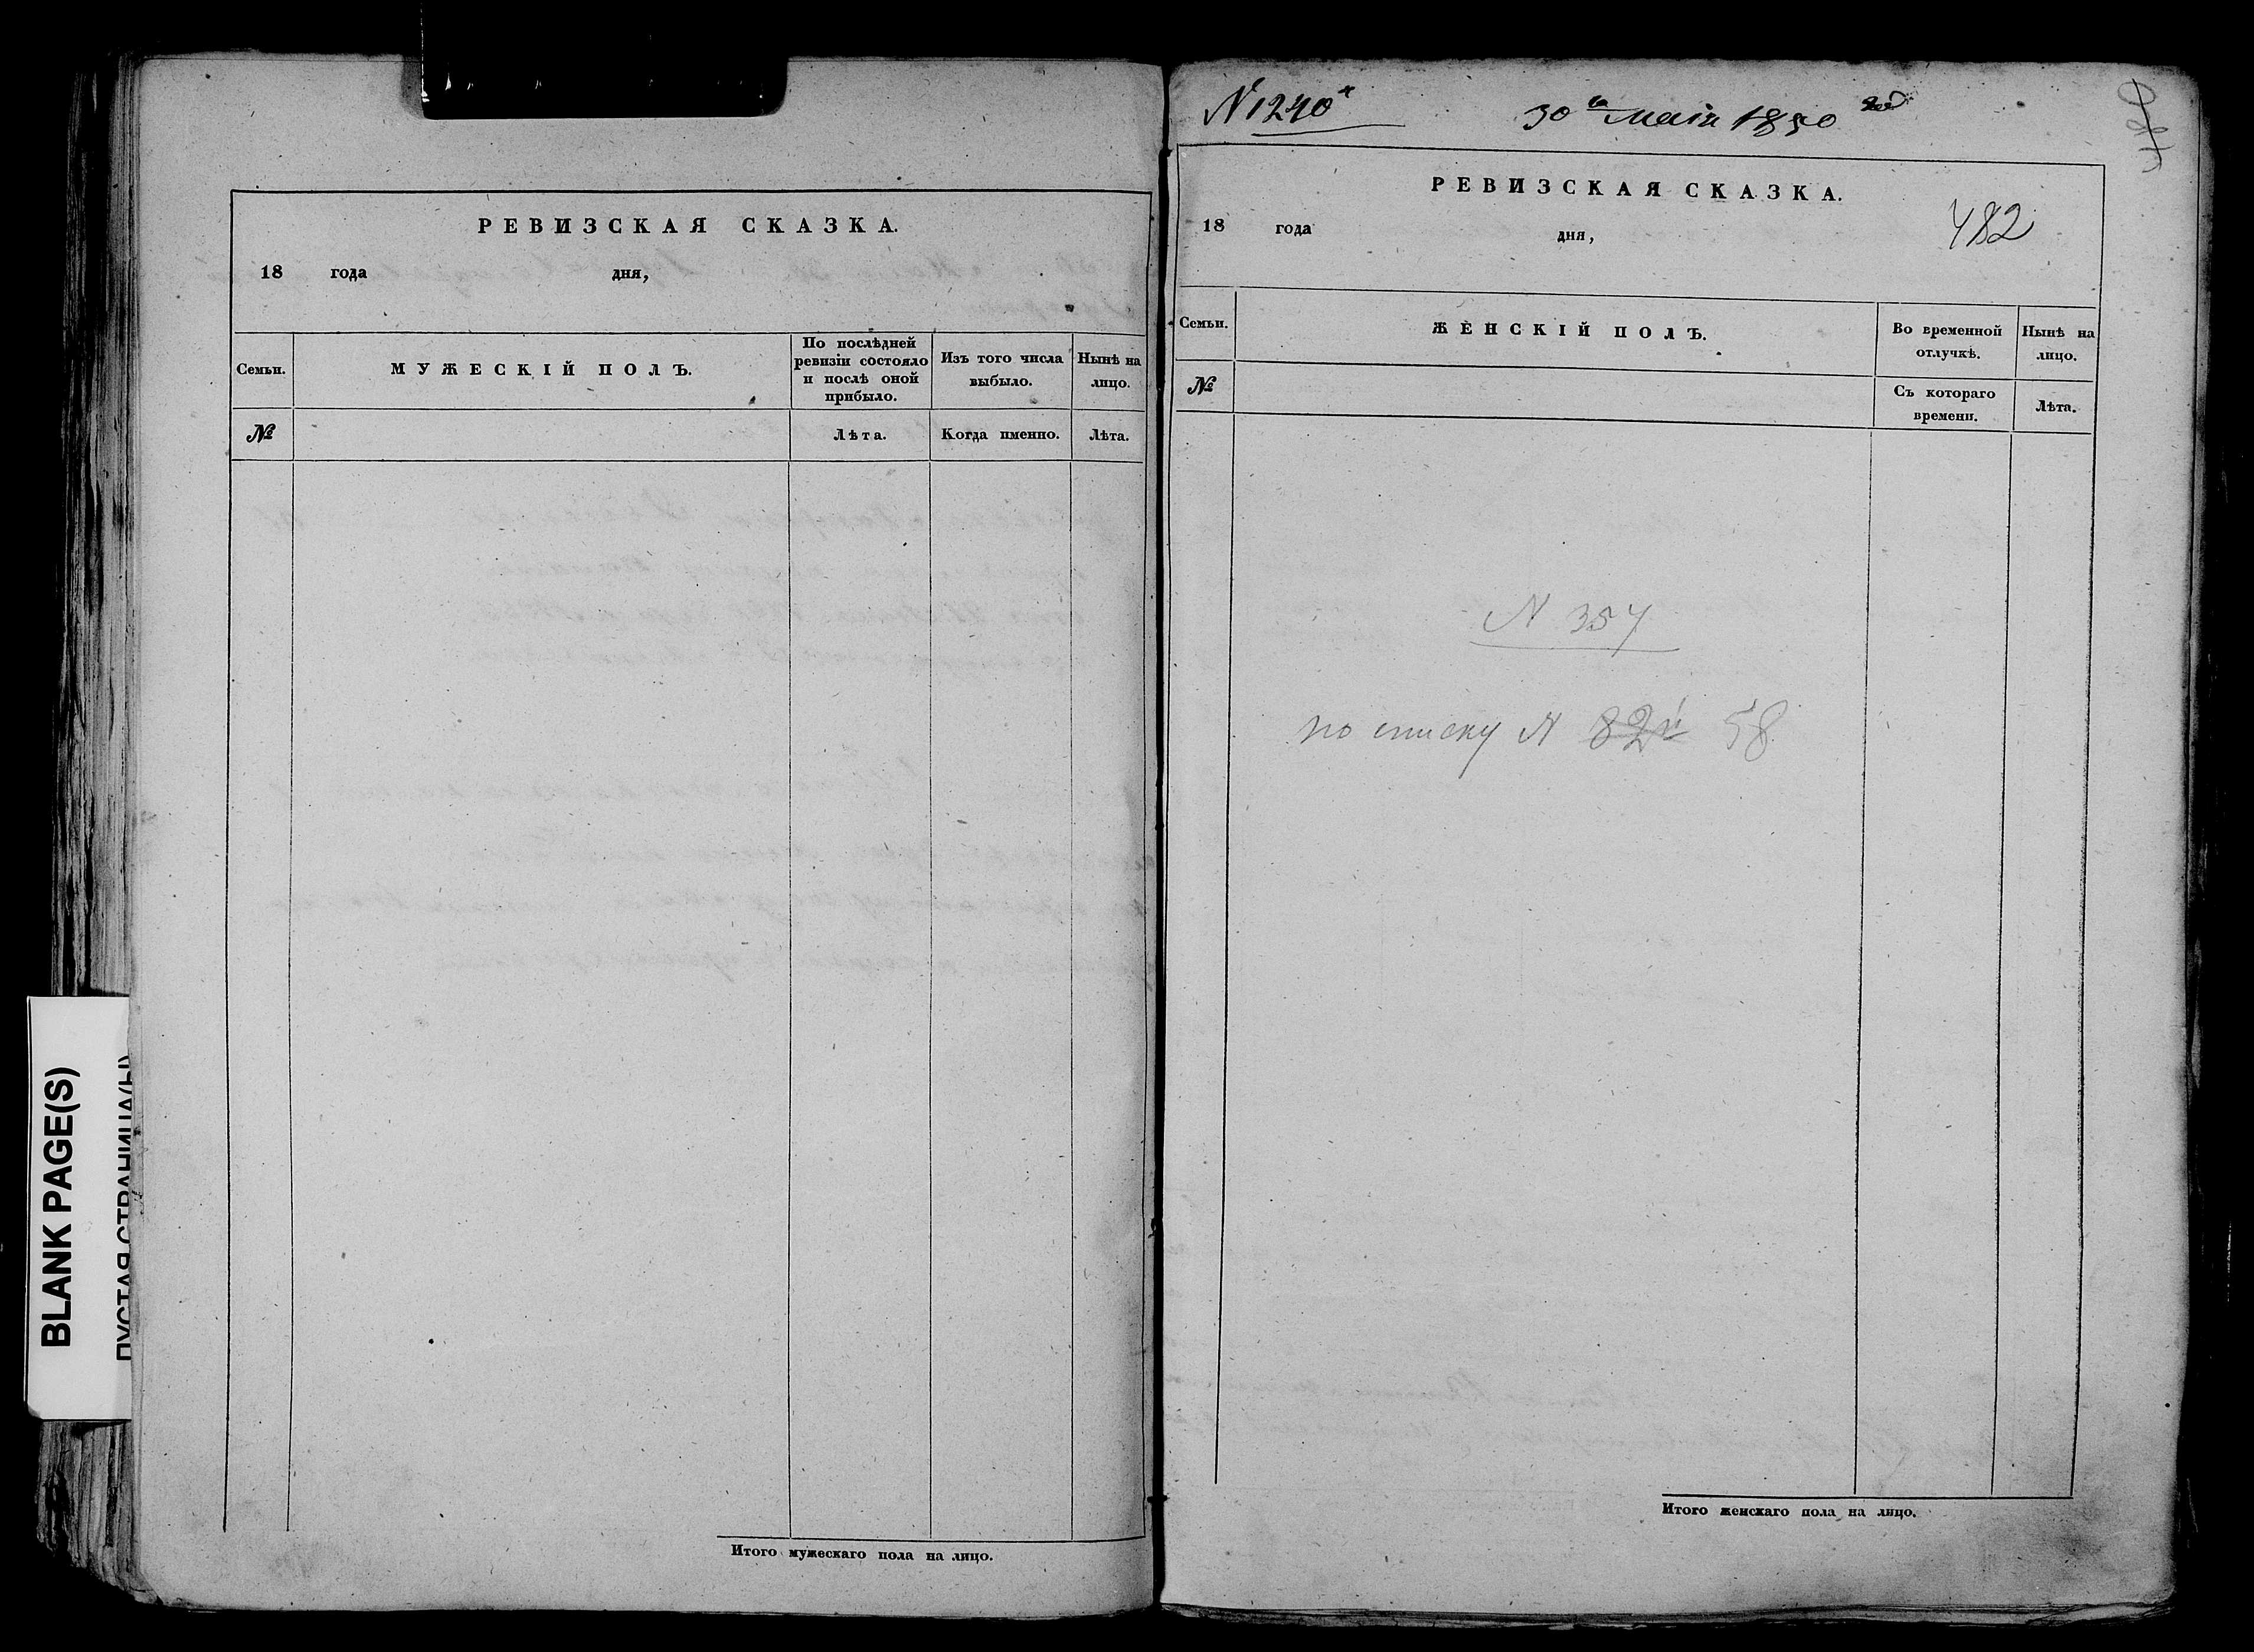 РЕВИЗСКАЯ СКАЗКА.
18 года дня,
Семьи.
МУЖЕСКІЙ ПОЛЪ.
По послѣдней ревизіи состояло и послѣ оной прибыло.
Изъ того числа выбыло.
Нынѣ на лицо.
№
Лѣта.
Когда именно.
Лѣта.
Итого мужескаго пола на лицо.
BLANK PAGE(S)
ПУСТАЯ СТРАНИЦА(Ы)
N 1240
30го Маія 1850
РЕВИЗСКАЯ СКАЗКА.
18 года дня,
482
Семьи.
ЖЕНСКІЙ ПОЛЪ.
Во временной отлучкѣ.
Нынѣ на лицо.
№
Съ котораго времени.
Лѣта.
N 357
по списку N 82 58
Итого женскаго пола на лицо.